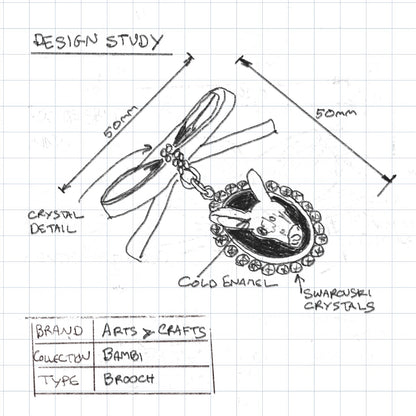 DESIGN STUDY
50mm
50mm
CRYSTAL
DETAIL
COLD ENAMEL
SWAROVSKI
CRYSTALS
BRAND ARTS & CRAFTS
COLLECTION BAMBI
TYPE BROOCH